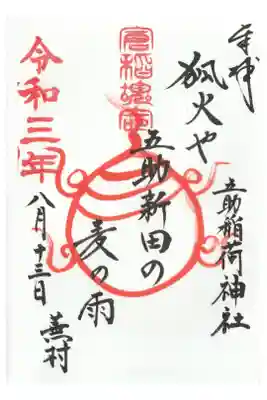 奉拝
五助稲荷神社
狐火や
五助新田の
麦の雨
蕪村
令和三年
八月十三日